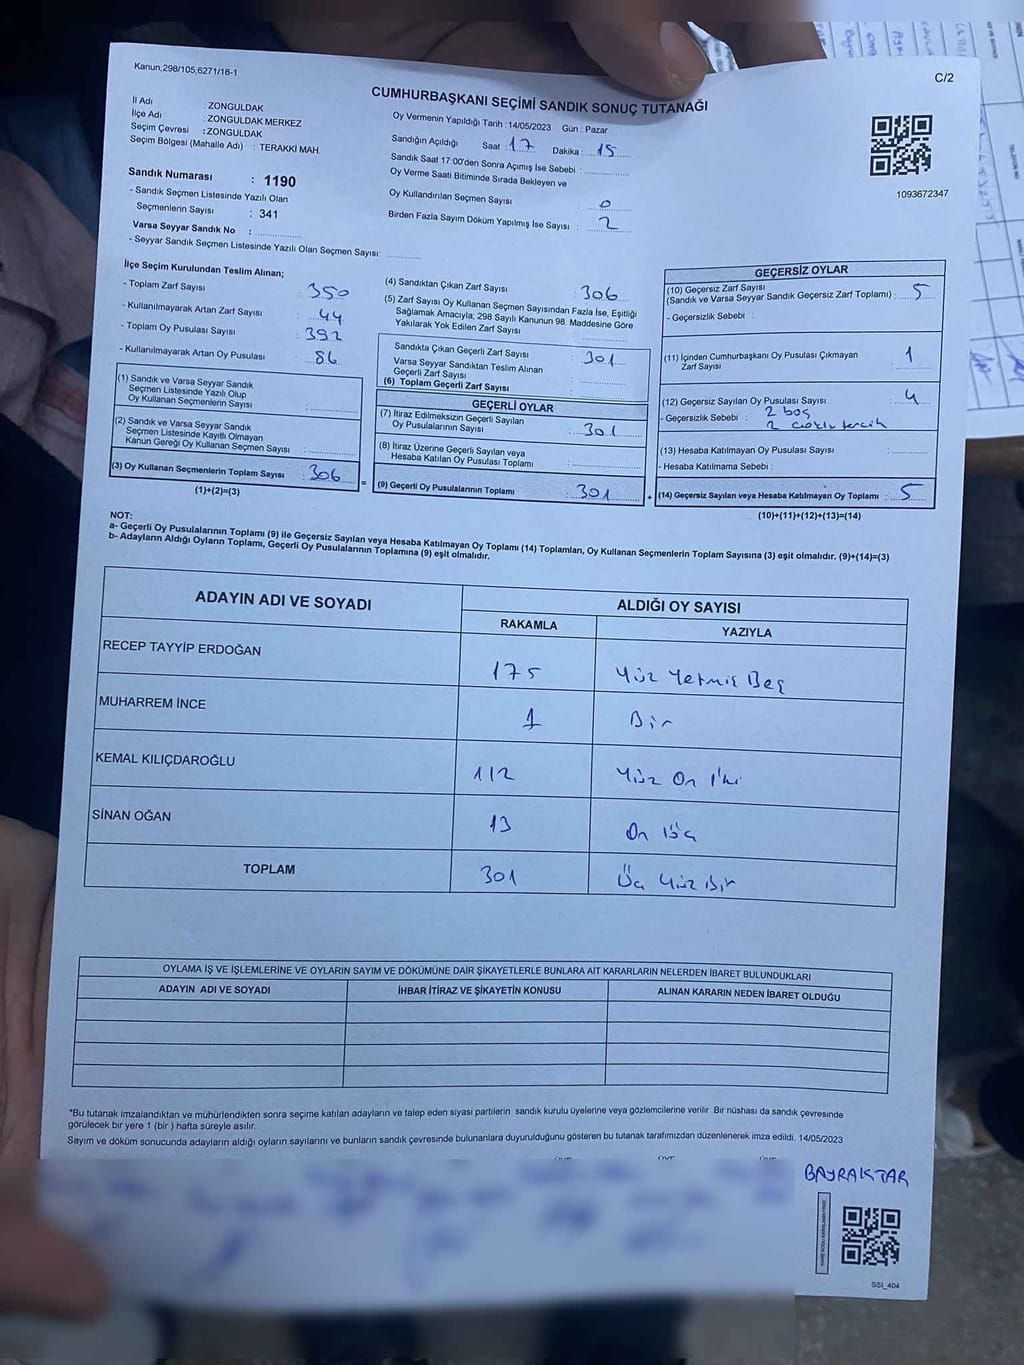 Kanun;298/105;6271/18-1
C/2
CUMHURBAŞKANI SEÇİMİ SANDIK SONUÇ TUTANAĞI
İl Adı : ZONGULDAK
İlçe Adı : ZONGULDAK MERKEZ
Seçim Çevresi : ZONGULDAK
Seçim Bölgesi (Mahalle Adı) : TERAKKİ MAH.
Sandık Numarası : 1190
- Sandık Seçmen Listesinde Yazılı Olan
Seçmenlerin Sayısı : 341
Varsa Seyyar Sandık No :
- Seyyar Sandık Seçmen Listesinde Yazılı Olan Seçmen Sayısı:
Oy Vermenin Yapıldığı Tarih :14/05/2023 Gün : Pazar
Sandığın Açıldığı Saat : 17 Dakika : 15
Sandık Saat 17:00'den Sonra Açımış İse Sebebi :
Oy Verme Saati Bitiminde Sırada Bekleyen ve
Oy Kullandırılan Seçmen Sayısı : 0
Birden Fazla Sayım Döküm Yapılmış İse Sayısı : 2
1093672347
İlçe Seçim Kurulundan Teslim Alınan;
- Toplam Zarf Sayısı : 350
- Kullanılmayarak Artan Zarf Sayısı : 44
- Toplam Oy Pusulası Sayısı : 392
- Kullanılmayarak Artan Oy Pusulası : 86
(1) Sandık ve Varsa Seyyar Sandık
Seçmen Listesinde Yazılı Olup
Oy Kullanan Seçmenlerin Sayısı :
(2) Sandık ve Varsa Seyyar Sandık
Seçmen Listesinde Kayıtlı Olmayan
Kanun Gereği Oy Kullanan Seçmen Sayısı :
(3) Oy Kullanan Seçmenlerin Toplam Sayısı : 306
(1)+(2)=(3)
(4) Sandıktan Çıkan Zarf Sayısı : 306
(5) Zarf Sayısı Oy Kullanan Seçmen Sayısından Fazla İse, Eşitliği
Sağlamak Amacıyla; 298 Sayılı Kanunun 98. Maddesine Göre
Yakılarak Yok Edilen Zarf Sayısı :
Sandıkta Çıkan Geçerli Zarf Sayısı : 301
Varsa Seyyar Sandıktan Teslim Alınan
Geçerli Zarf Sayısı :
(6) Toplam Geçerli Zarf Sayısı :
GEÇERLİ OYLAR
(7) İtiraz Edilmeksizin Geçerli Sayılan
Oy Pusulalarının Sayısı : 301
(8) İtiraz Üzerine Geçerli Sayılan veya
Hesaba Katılan Oy Pusulası Toplamı :
= (9) Geçerli Oy Pusulalarının Toplamı : 301 +
GEÇERSİZ OYLAR
(10) Geçersiz Zarf Sayısı
(Sandık ve Varsa Seyyar Sandık Geçersiz Zarf Toplamı) : 5
- Geçersizlik Sebebi :
(11) İçinden Cumhurbaşkanı Oy Pusulası Çıkmayan
Zarf Sayısı : 1
(12) Geçersiz Sayılan Oy Pusulası Sayısı : 4
- Geçersizlik Sebebi : 2 boş
2 çoklu tercih
(13) Hesaba Katılmayan Oy Pusulası Sayısı :
- Hesaba Katılmama Sebebi :
(14) Geçersiz Sayılan veya Hesaba Katılmayan Oy Toplamı : 5
(10)+(11)+(12)+(13)=(14)
NOT:
a- Geçerli Oy Pusulalarının Toplamı (9) ile Geçersiz Sayılan veya Hesaba Katılmayan Oy Toplamı (14) Toplamları, Oy Kullanan Seçmenlerin Toplam Sayısına (3) eşit olmalıdır. (9)+(14)=(3)
b- Adayların Aldığı Oyların Toplamı, Geçerli Oy Pusulalarının Toplamına (9) eşit olmalıdır.
ADAYIN ADI VE SOYADI
ALDIĞI OY SAYISI
RAKAMLA YAZIYLA
RECEP TAYYİP ERDOĞAN 175 Yüz Yetmiş Beş
MUHARREM İNCE 1 Bir
KEMAL KILIÇDAROĞLU 112 Yüz On İki
SİNAN OĞAN 13 On Üç
TOPLAM 301 Üç Yüz Bir
OYLAMA İŞ VE İŞLEMLERİNE VE OYLARIN SAYIM VE DÖKÜMÜNE DAİR ŞİKAYETLERLE BUNLARA AİT KARARLARIN NELERDEN İBARET BULUNDUKLARI
ADAYIN ADI VE SOYADI İHBAR İTİRAZ VE ŞİKAYETİN KONUSU ALINAN KARARIN NEDEN İBARET OLDUĞU
*Bu tutanak imzalandıktan ve mühürlendikten sonra seçime katılan adayların ve talep eden siyasi partilerin sandık kurulu üyelerine veya gözlemcilerine verilir. Bir nüshası da sandık çevresinde
görülecek bir yere 1 (bir ) hafta süreyle asılır.
Sayım ve döküm sonucunda adayların aldığı oyların sayılarını ve bunların sandık çevresinde bulunanlara duyurulduğunu gösteren bu tutanak tarafımızdan düzenlenerek imza edildi. 14/05/2023
BAYRAKTAR
SSI_404